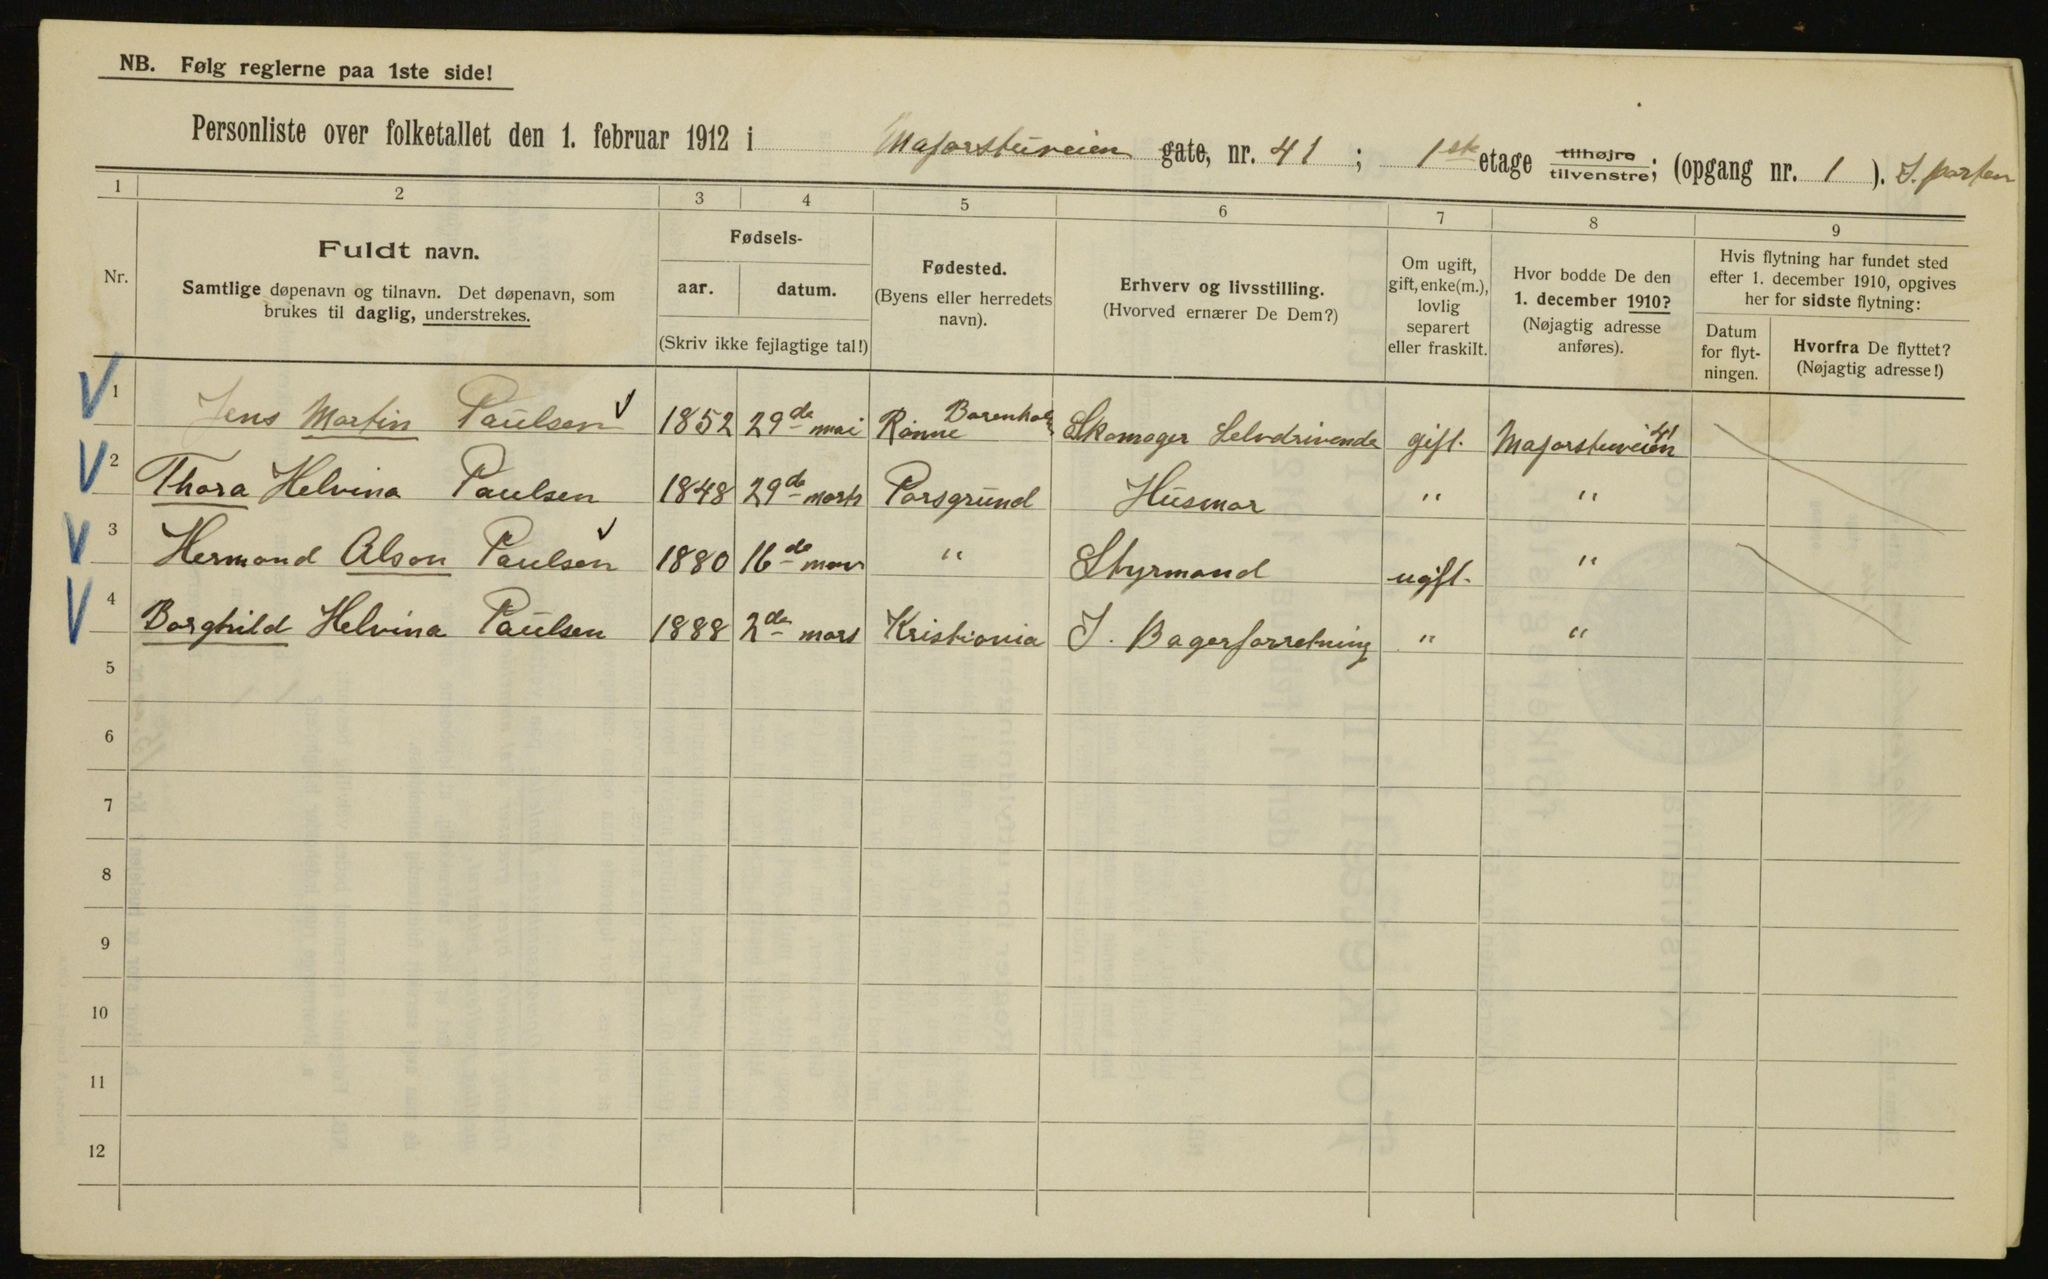 NB. Følg reglerne paa 1ste side!
Personliste over folketallet den 1. februar 1912 i Majorstuveien gate, nr. 41 ; 1ste etage tilhøjre tilvenstre; (opgang nr. 1 ). I. porten
1 2 3 4 5 6 7 8 9
Nr.
Fuldt navn.
Samtlige døpenavn og tilnavn. Det døpenavn, som
brukes til daglig, understrekes.
Fødsels-
aar. datum.
(Skriv ikke fejlagtige tal!)
Fødested.
(Byens eller herredets
navn).
Erhverv og livsstilling.
(Hvorved ernærer De Dem?)
Om ugift,
gift, enke(m.),
lovlig
separert
eller fraskilt.
Hvor bodde De den
1. december 1910?
(Nøjagtig adresse
anføres).
Hvis flytning har fundet sted
efter 1. december 1910, opgives
her for sidste flytning:
Datum
for flyt-
ningen.
Hvorfra De flyttet?
(Nøjagtig adresse!)
1 Jens Martin Paulsen 1852 29de mai Rønne Borenholm Skomager Selvdrivende gift. Majorstuveien 41
2 Thora Helvina Paulsen 1848 29de marts Porsgrund Husmor " "
3 Hermand Alson Paulsen 1880 16de mars " Styrmand ugift. "
4 Borghild Helvina Paulsen 1888 2den mars Kristiania I. Bagerforretning " "
5
6
7
8
9
10
11
12